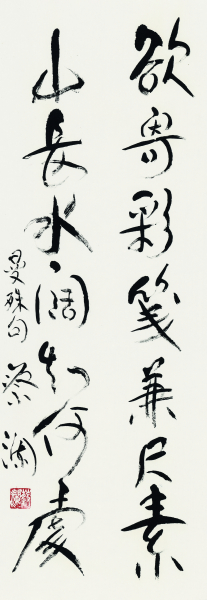 欲寄彩箋兼尺素
山長水闊知何處
曼殊句
蔡瀾